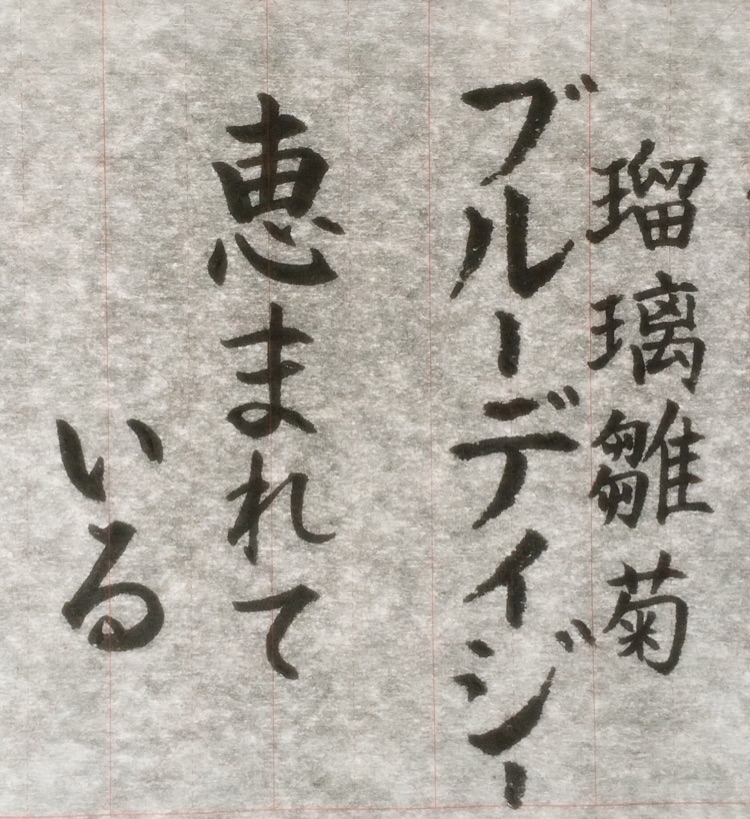 瑠璃雛菊
ブルーデイジー
恵まれて
いる